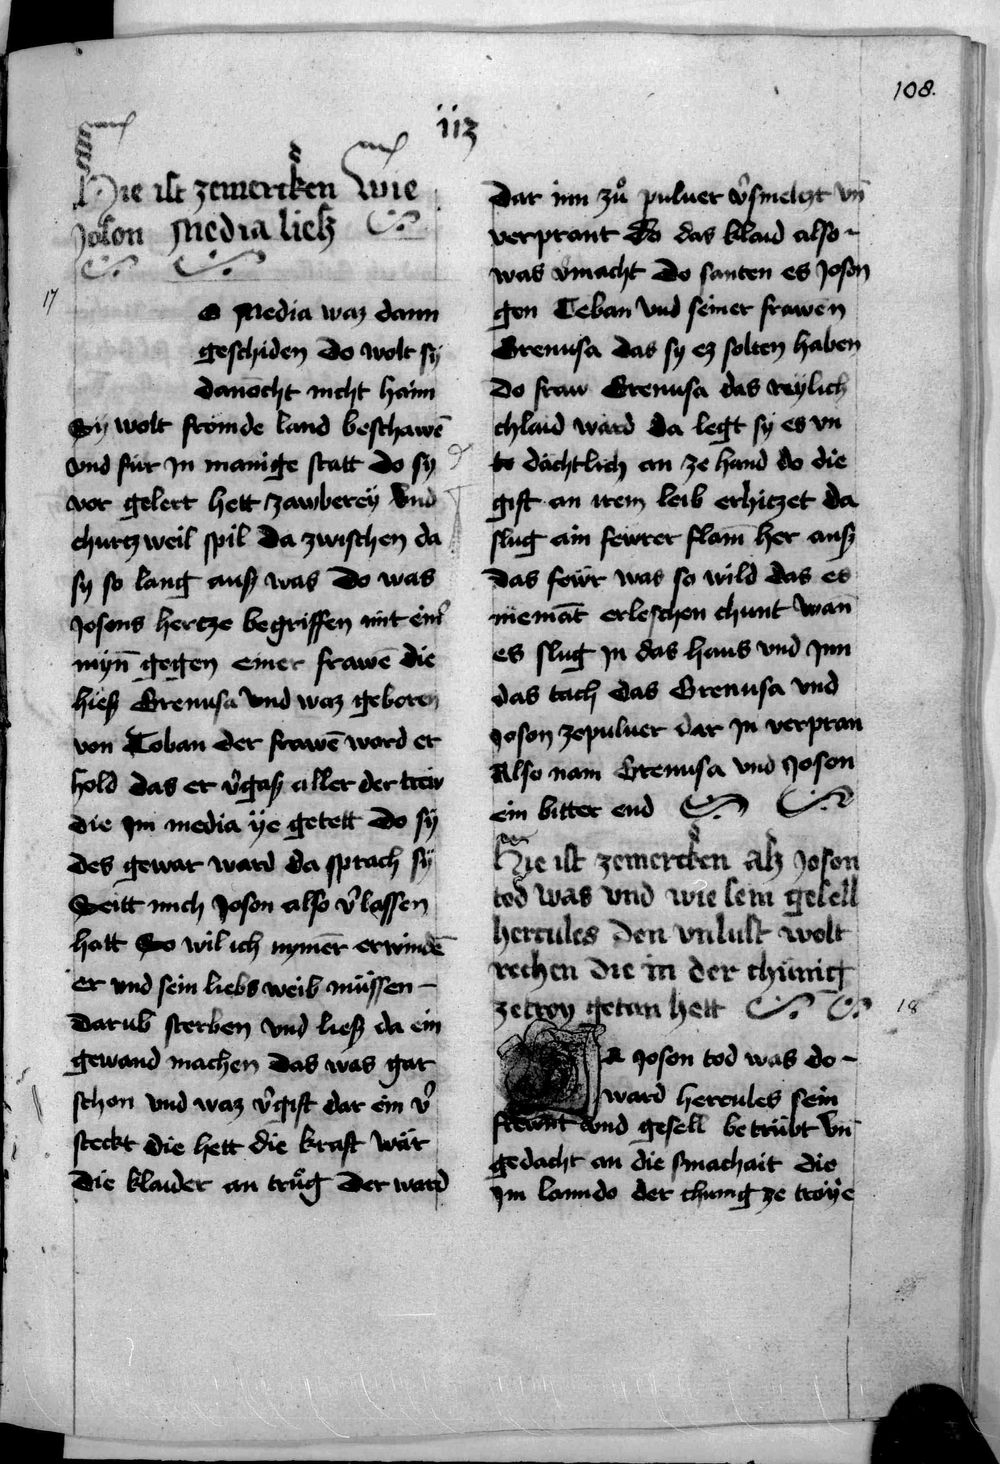 108.
iiz
Hie ist zemercken Wie
Joson Media liesz
17
o Media waz dann
geschiden Do wolt sy
dannocht nicht haim
Sy wolt frömde land beschawē
vnd für jn manige statt Do sy
vor gelert hett zawberey vnd
churtzweil spil Da zwischen da
sy so lang ausz was Do was
Josons hertze begriffen mit ein᷑
myn̄ gegen einer frawē die
hiesz Brenusa vnd waz geboren
von Toban der frawē ward er
hold das er v᷑gasz aller der trew
die Jm media ye getett Do sy
des gewar ward da sprach sy
Seitt mich Joson also v᷑lassen
hatt So wil ich nym̄er erwindē
er vnd sein liebs weib müssen -
darūb sterben vnd liesz da ein
gewand machen das was gar
schon vnd waz v᷑gift dar ein v᷑
steckt die hett die kraft wär
die klaider an trůg Der ward
Dar inn zů puluer v᷑smeltzt vn̄
verprant Do das klaid also -
was v᷑macht Do santen es Joson
gen Teban vnd seiner frawen
Brenusa das sy ez solten haben
Do fraw Brenusa das reylich
chlaid ward Da legt sy es vn
dächtlich an ze hand do die
gift an irem leib erhitzet da
slug ain fewrer flam̄ her ausz
das fewr was so wild das es
niemāt erleschen chunt wan̄
es slug jn das haus vnd jnn
das tach das Brenusa vnd
Joson zepuluer dar jn verpran
Also nam Brenusa vnd Joson
ein bitter end
Hie ist zemercken alz Joson
tod was vnd wie sein gesell
hercules den vnlust wolt
rechen die in der chünig
zetroy getan hett
18
A Joson tod was do -
ward hercules sein
frewnt vnd gesell betrübt vn̄
gedacht an die smachait die
jm lamido der chunig ze troye